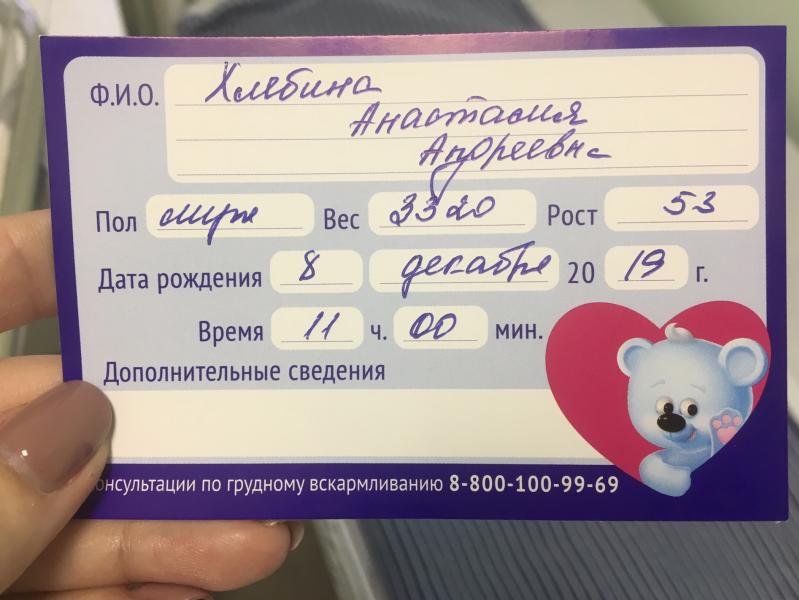 Ф.И.О. Хлебина
Анастасия
Андреевна
Пол муж Вес 3320 Рост 53
Дата рождения 8 декабря 2019 г.
Время 11 ч. 00 мин.
Дополнительные сведения
онсультации по грудному вскармливанию 8-800-100-99-69